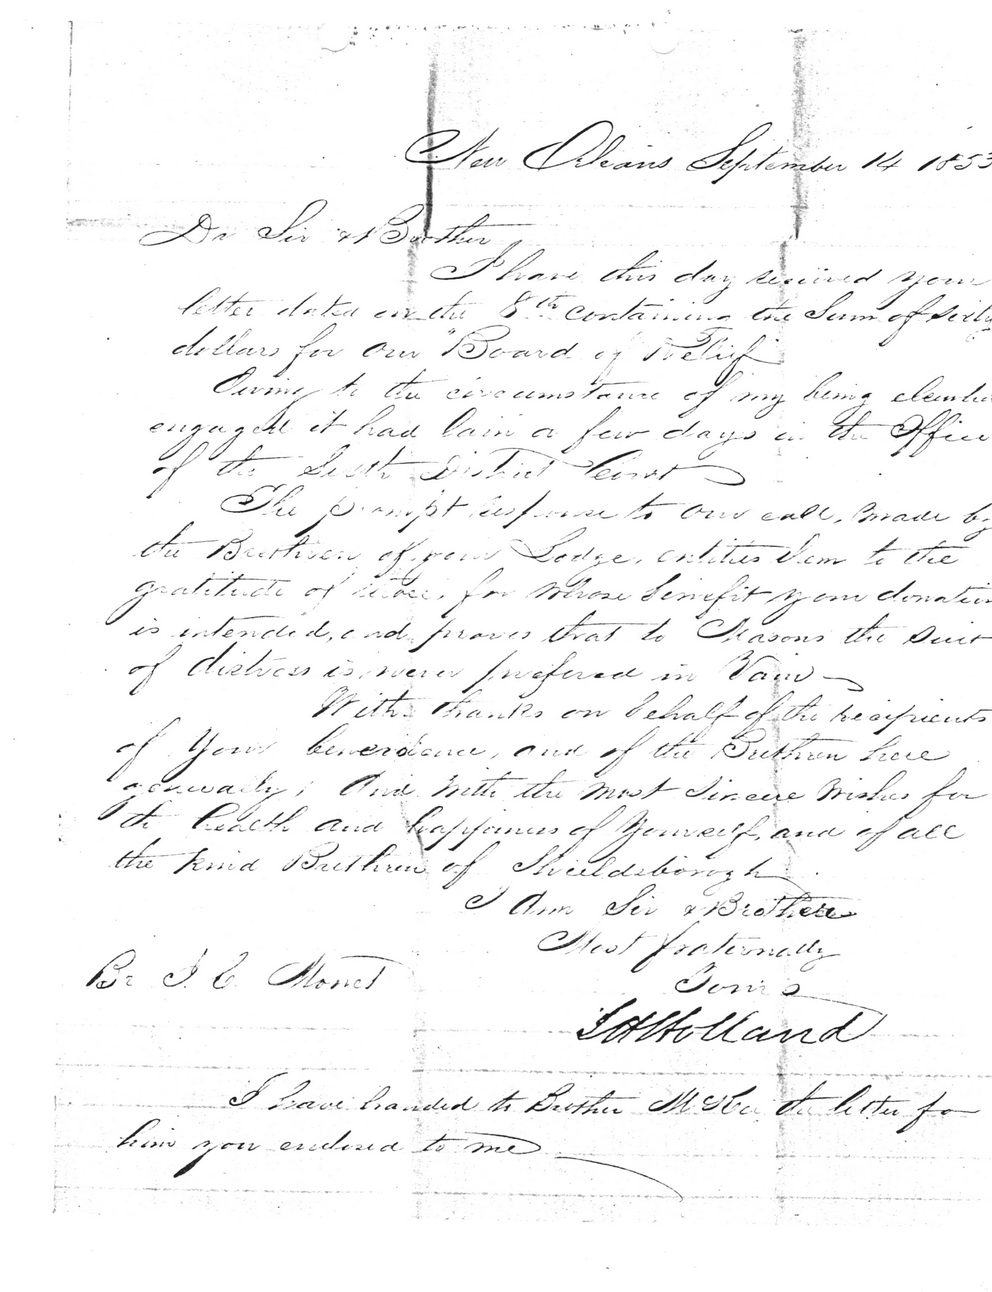 New Orleans September 14 1853
Dr Sir & Brother
I have this day received your
letter dated on the 8th containing the Sum of sixty
dollars for our "Board of Relief"
Owing to the circumstance of my being elsewhere
engaged it had lain a few days in the Office
of the Sixth District Court
The prompt response to our call, made by
the Brethren of your Lodge, entitles them to the
gratitude of those, for whose benefit your donation
is intended, and proves that to Masons the
of distress is never prefered in Vain
With thanks on behalf of the recipients
of Your benevolence, and of the Brethren here
generally; And with the most Sincere Wishes for
the health and happiness of Yourself, and of all
the kind Brethren of Shieldsborough
I Am Sir & Brother
Most fraternally
Yours
Br J. C. Monet
S H Holland
I have handed to Brother the letter for
him you enclosed to me